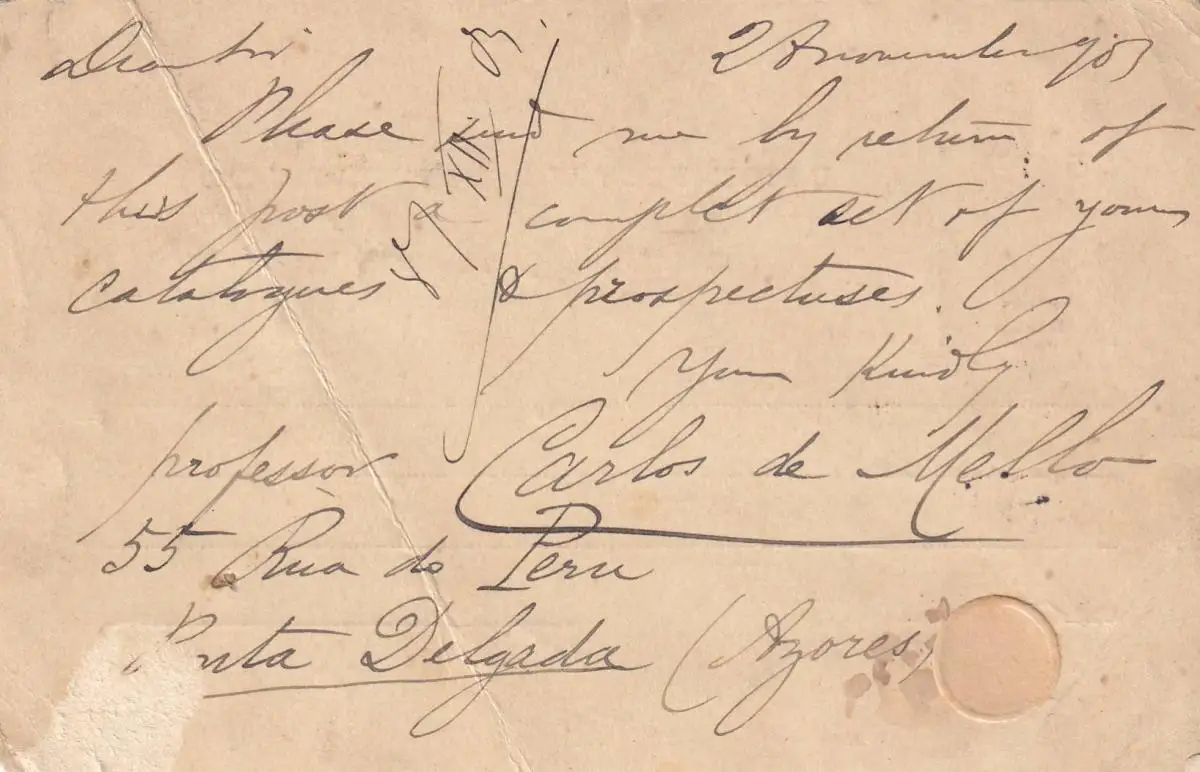 Dear Sir 2 November 903
Please send me by return of
this post a complet set of your
catalogues & prospectuses.
Your Kindly
professor Carlos de Mello
55 Rua do Peru
Ponta Delgada (Azores)
XII